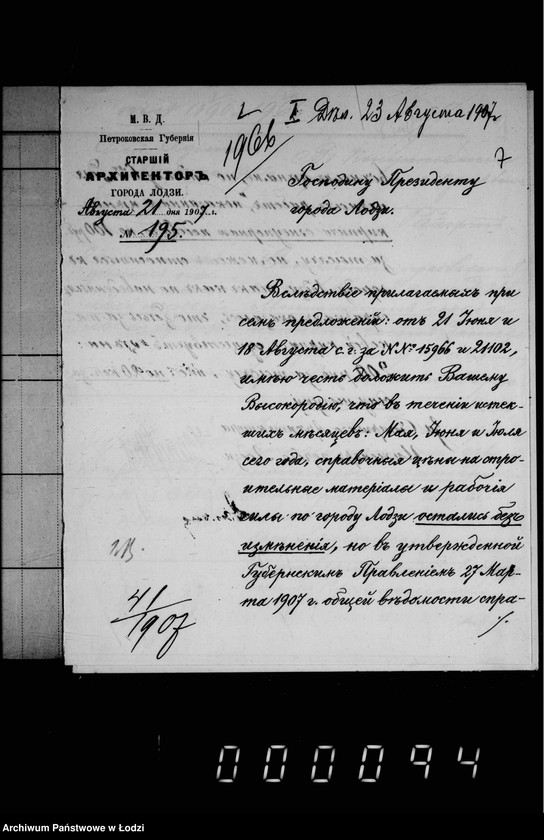 I Дѣл. 23 Августа 1907 г
7
М. В. Д.
Петроковская Губернія
СТАРШІЙ
АРХИТЕКТОРЪ
ГОРОДА ЛОДЗИ.
Августа 21 дня 1907 г.
№ 195.
Господину Президенту
города Лодзи.
Вслѣдствіе прилагаемыхъ при
семъ предложеній: отъ 21 Іюня и
18 Августа с. г. за N.Nº 15966 и 21102,
имѣю честь доложить Вашему
Высокородію, что въ теченіи истек-
шихъ мѣсяцевъ: Мая, Іюня и Іюля
сего года, справочныя цѣны на стро-
ительные матеріалы и рабочія
силы по городу Лодзи остались безъ
измѣненія, но въ утвержденной
Губернскимъ Правленіемъ 27 Мар-
та 1907 г. общей вѣдомости спра-
41/1907
000094
Archiwum Państwowe w Łodzi